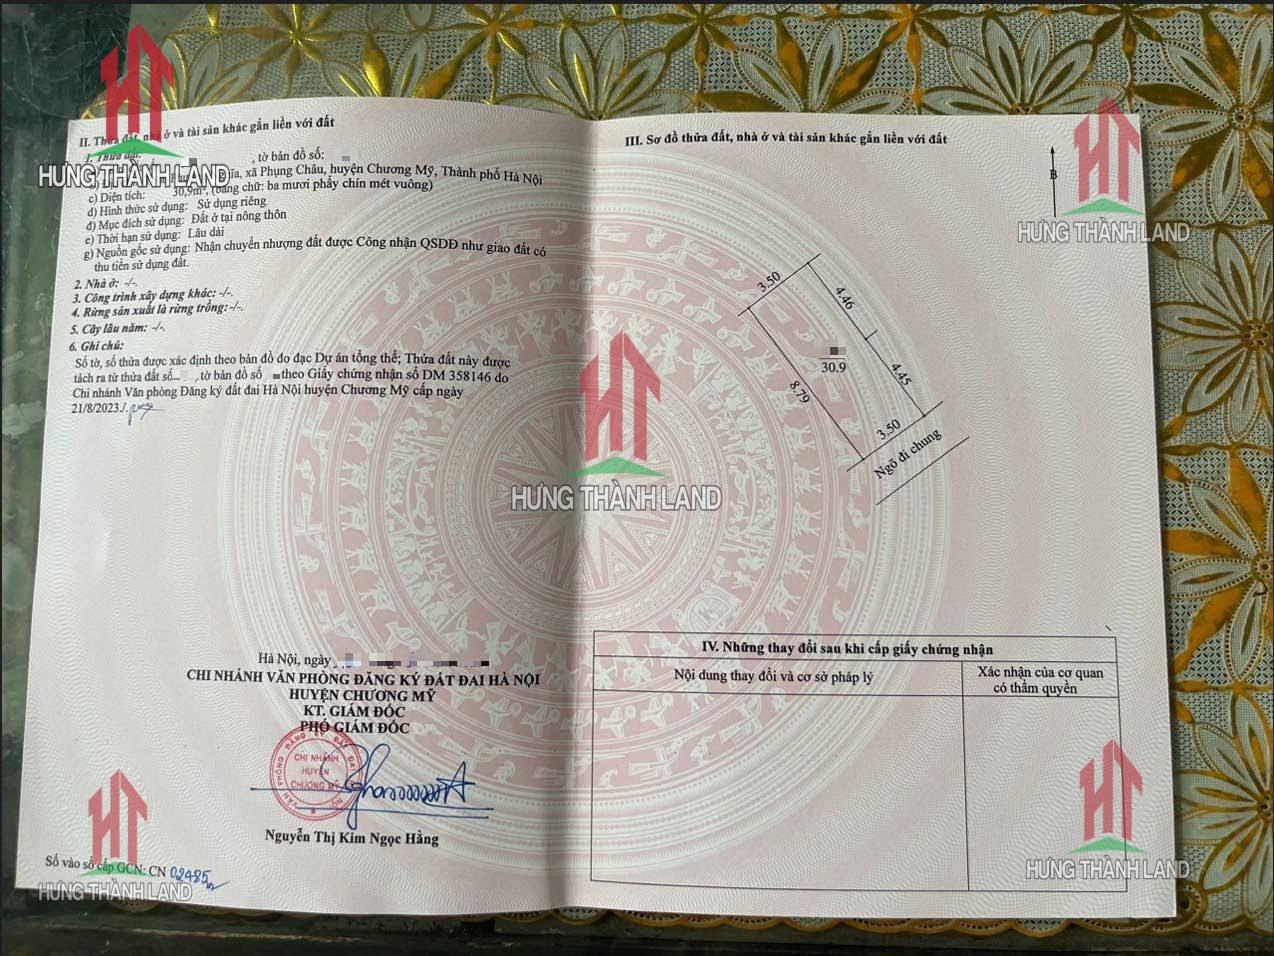 II. Thửa đất, nhà ở và tài sản khác gắn liền với đất
1. Thửa đất:
, tờ bản đồ số:
xã Phụng Châu, huyện Chương Mỹ, Thành phố Hà Nội
c) Diện tích: 30,9m², (bằng chữ: ba mươi phẩy chín mét vuông)
d) Hình thức sử dụng: Sử dụng riêng
đ) Mục đích sử dụng: Đất ở tại nông thôn
e) Thời hạn sử dụng: Lâu dài
g) Nguồn gốc sử dụng: Nhận chuyển nhượng đất được Công nhận QSDĐ như giao đất có
thu tiền sử dụng đất.
2. Nhà ở: -/-.
3. Công trình xây dựng khác: -/-.
4. Rừng sản xuất là rừng trồng:-/-.
5. Cây lâu năm: -/-.
6. Ghi chú:
Số tờ, số thửa được xác định theo bản đồ đo đạc Dự án tổng thể; Thửa đất này được
tách ra từ thửa đất số , tờ bản đồ số theo Giấy chứng nhận số DM 358146 do
Chi nhánh Văn phòng Đăng ký đất đai Hà Nội huyện Chương Mỹ cấp ngày
21/8/2023./.
Hà Nội, ngày
CHI NHÁNH VĂN PHÒNG ĐĂNG KÝ ĐẤT ĐAI HÀ NỘI
HUYỆN CHƯƠNG MỸ
KT. GIÁM ĐỐC
PHÓ GIÁM ĐỐC
VĂN PHÒNG ĐĂNG KÝ ĐẤT ĐAI HÀ NỘI
CHI NHÁNH
HUYỆN
CHƯƠNG MỸ
Nguyễn Thị Kim Ngọc Hằng
Số vào sổ cấp GCN: CN 02485
III. Sơ đồ thửa đất, nhà ở và tài sản khác gắn liền với đất
B
3.50
4.46
30.9
8.79
4.45
3.50
Ngõ đi chung
IV. Những thay đổi sau khi cấp giấy chứng nhận
Nội dung thay đổi và cơ sở pháp lý
Xác nhận của cơ quan
có thẩm quyền
HƯNG THÀNH LAND
HƯNG THÀNH LAND
HƯNG THÀNH LAND
HƯNG THÀNH LAND
HƯNG THÀNH LAND